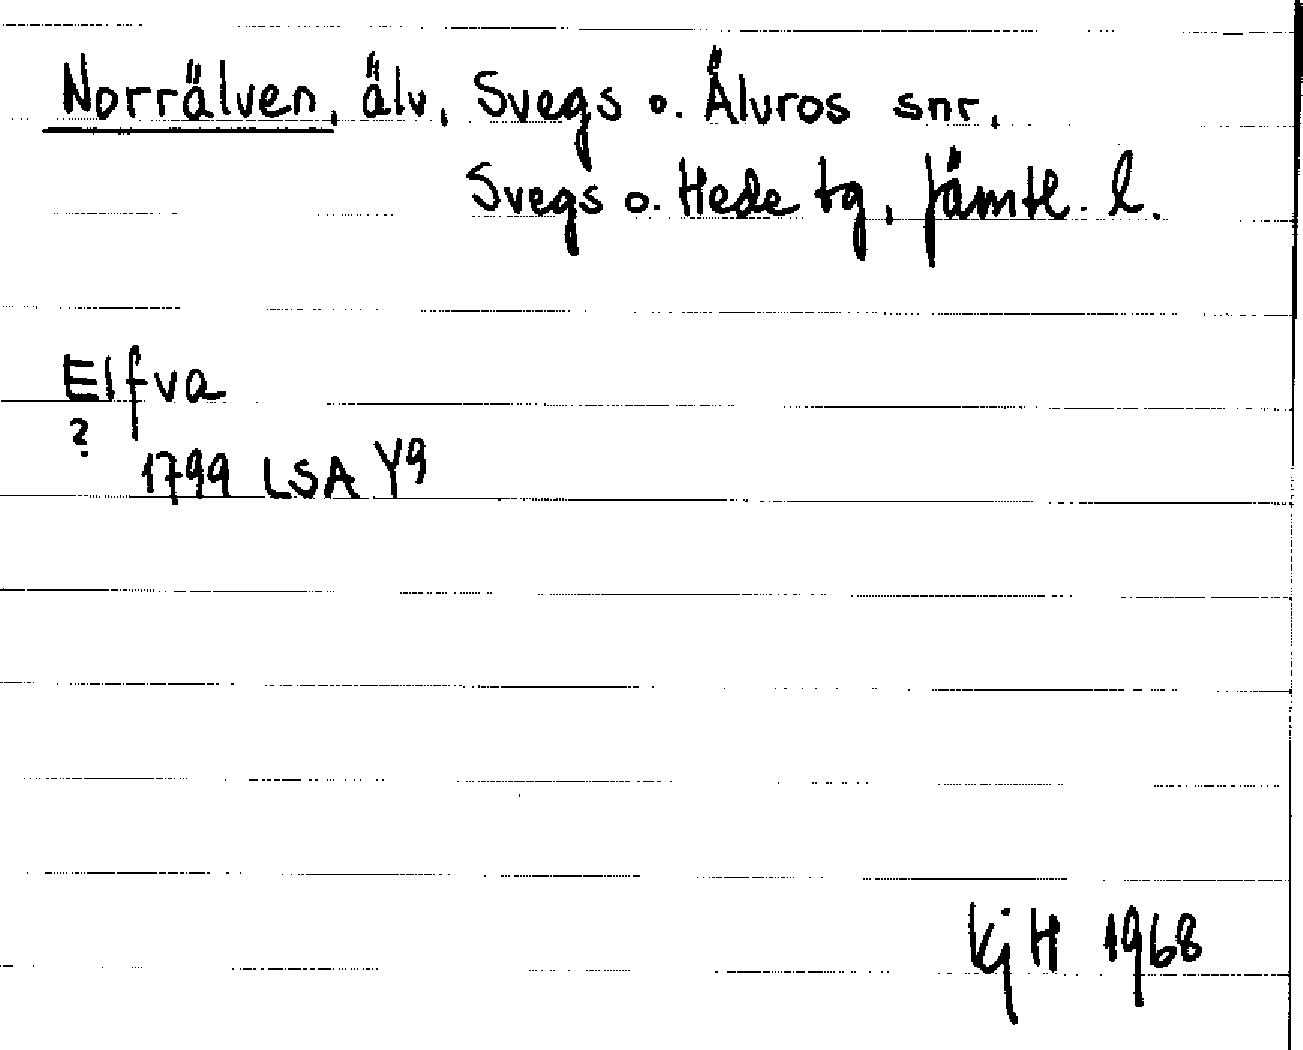 Norrälven, älv, Svegs o. Älvros snr,
Svegs o. Hede tg, Jämtl. l.
Elfva
?
1799 LSA Y9
KjH 1968